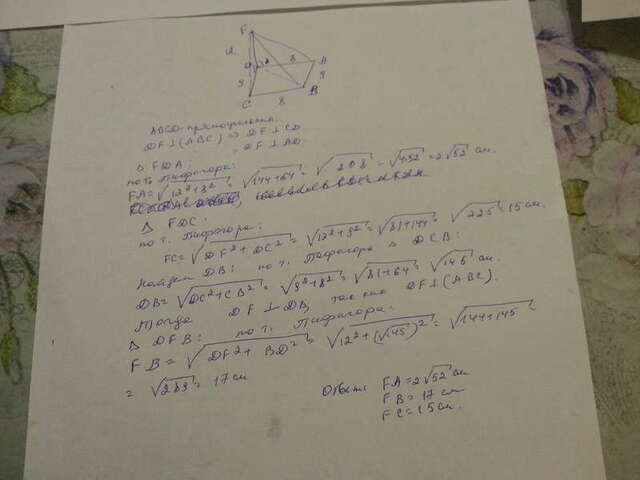 F
12
8
A
9
9
C
8
B
ABCD - прямоугольник.
DF⊥(ABC) ⇒ DF⊥CD
DF⊥AD
Δ FDA:
по т. Пифагора:
FA=√12²+8² = √144+64 = √208 = √4·52 = 2√52 см.
Δ FDC:
по т. Пифагора:
FC=√DF²+DC² = √12²+9² = √81+144 = √225 = 15 см.
Найдем DB: по т. Пифагора Δ DCB:
DB=√DC²+CB² = √9²+8² = √81+64 = √145 см.
Тогда DF⊥DB, так как DF⊥(ABC).
Δ DFB: по т. Пифагора:
FB=√DF²+BD² = √12²+(√145)² = √144+145 =
= √289 = 17 см
Ответ: FA=2√52 см
FB=17 см
FC=15 см.